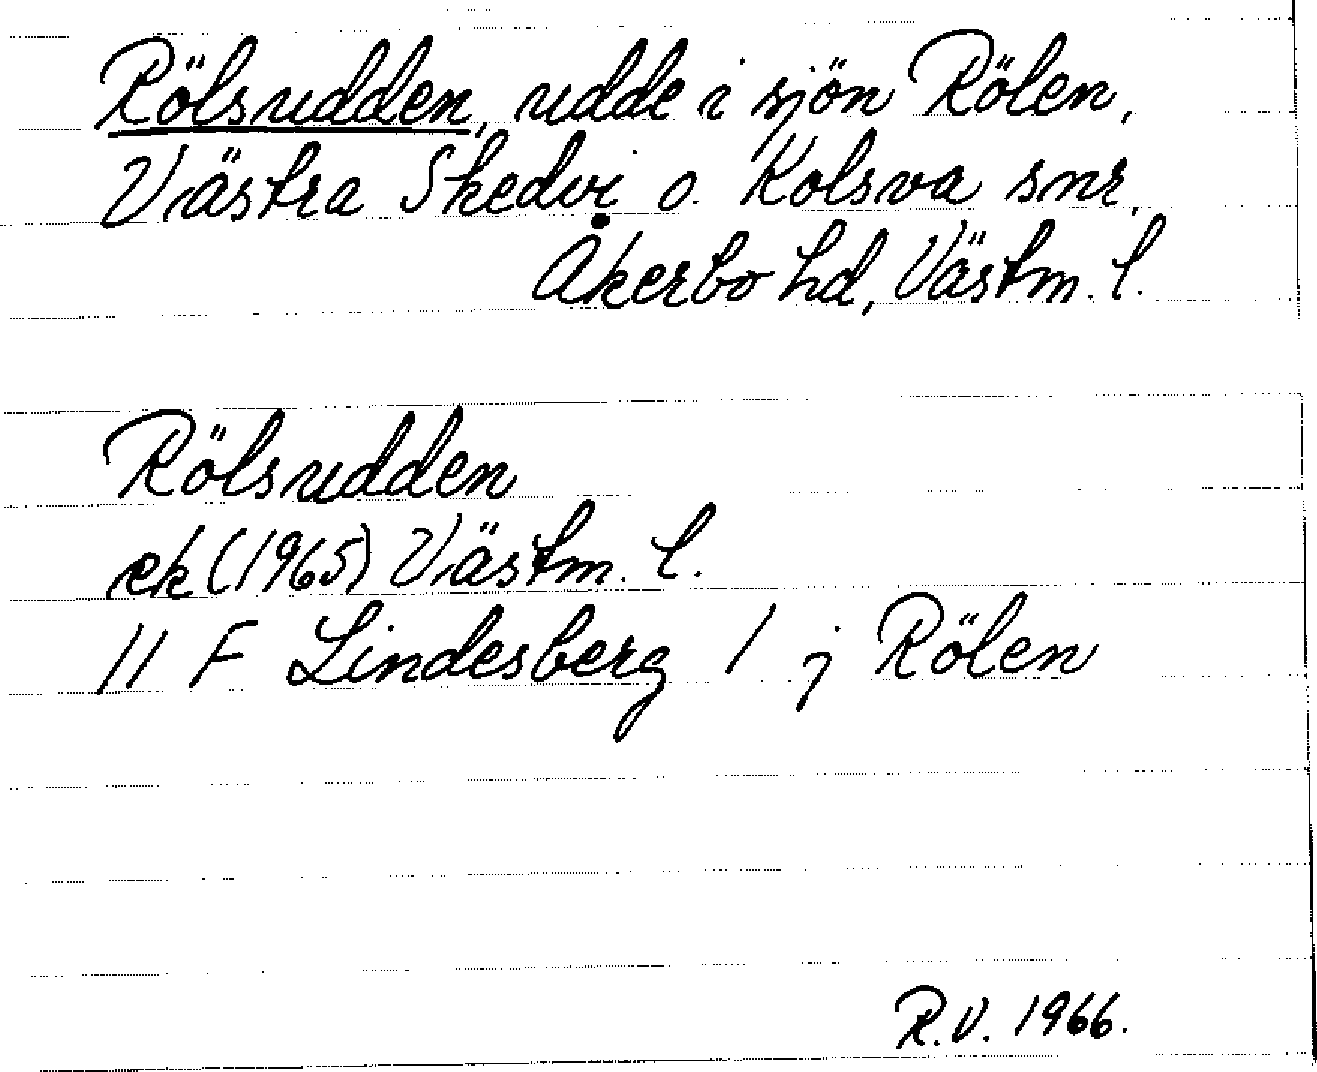 Rölsudden, udde i sjön Rölen,
Västra Skedvi o. Kolsva snr,
Åkerbo hd, Västm. l.
Rölsudden
ek (1965) Västm. l.
11 F Lindesberg 1 j Rölen
R.V. 1966.